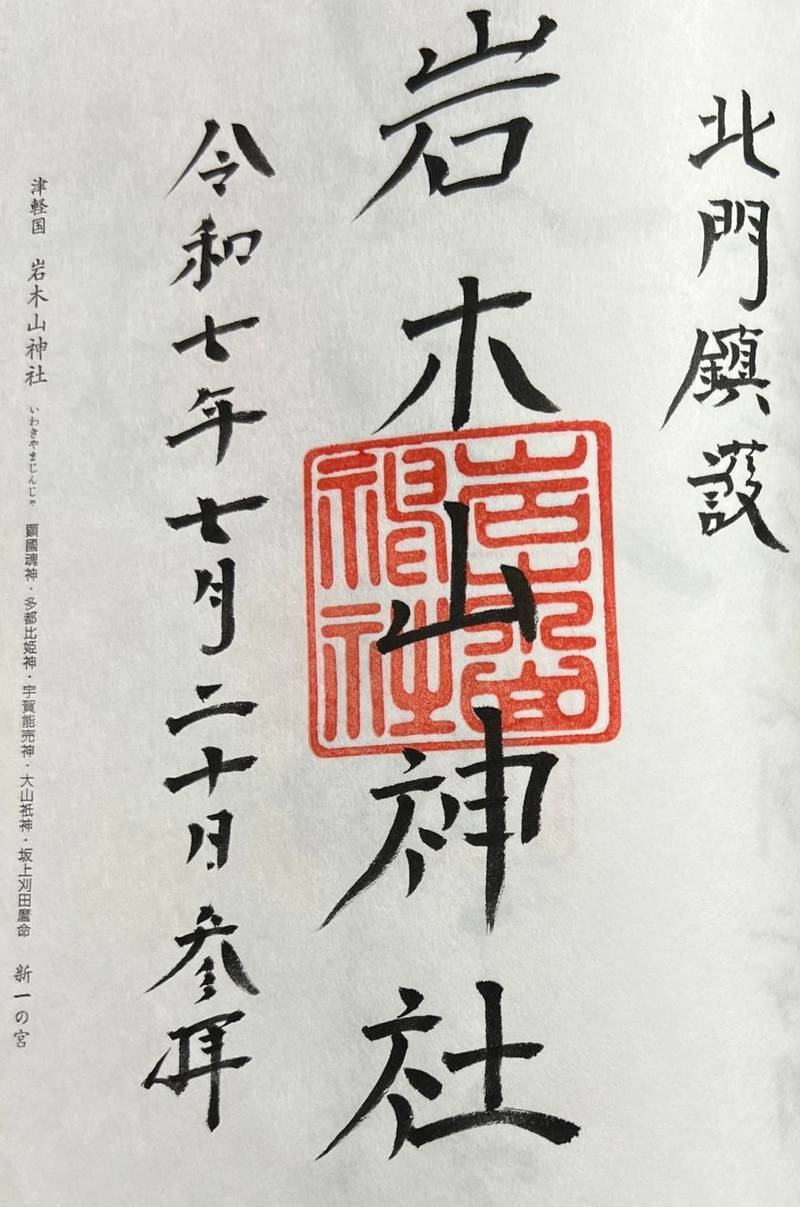 北門鎮護
岩木山神社
岩木山神社
令和七年七月二十日参拝
津軽国 岩木山神社 いわきやまじんじゃ 顕國魂神・多都比姫神・宇賀能売神・大山祗神・坂上刈田麿命 新一の宮